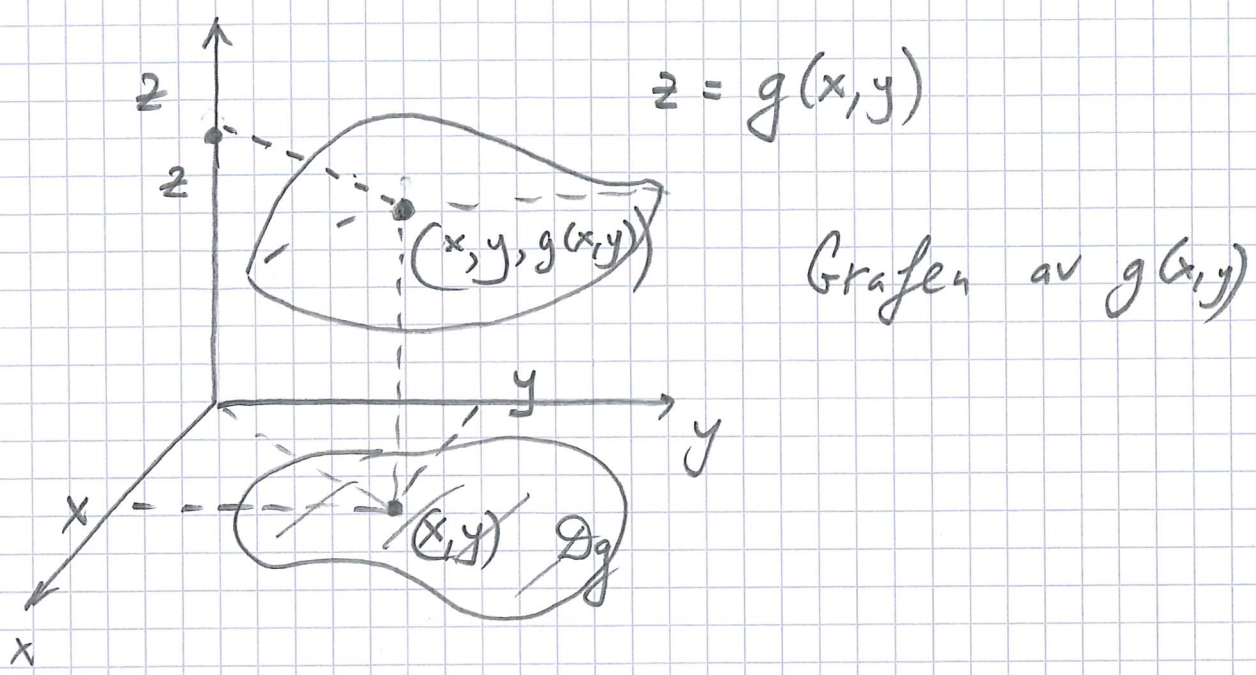 z
z = g(x,y)
z
(x, y, g(x,y))
Grafen av g(x,y)
y
y
x
(x,y)
Dg
x